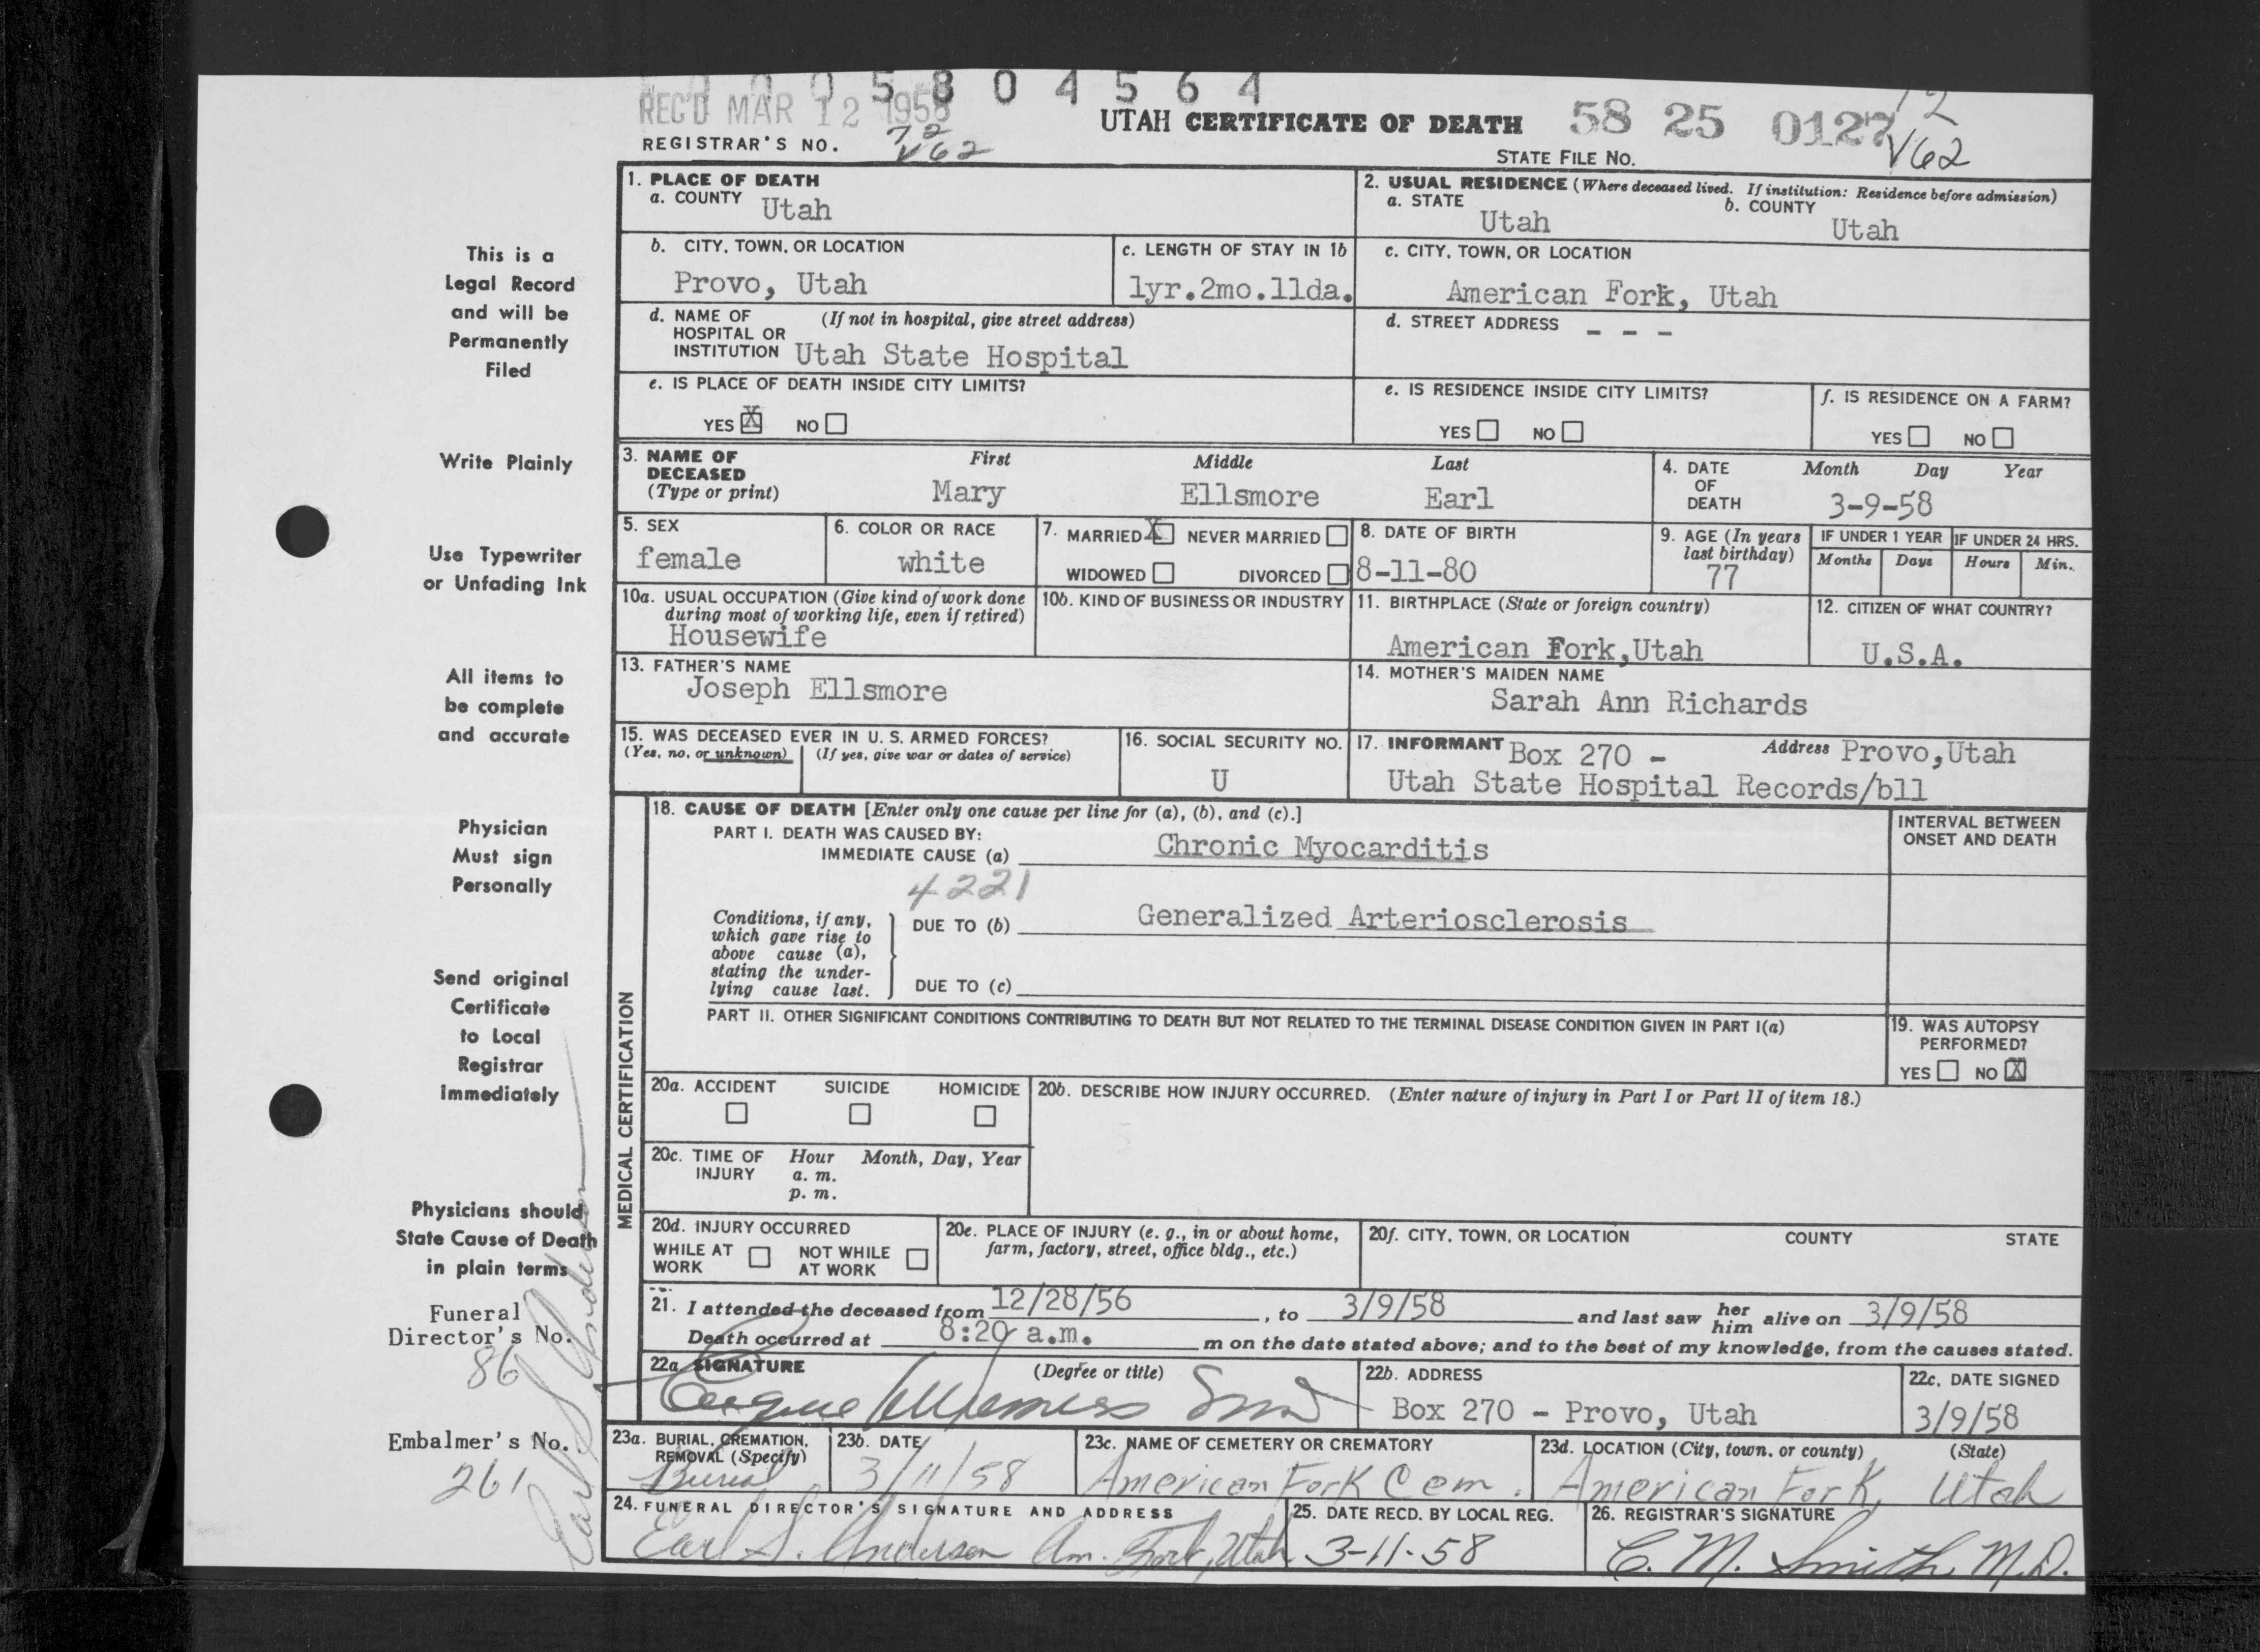 0 0 0 5 8 0 4 5 6 4
REC'D MAR 12 1958
UTAH CERTIFICATE OF DEATH 58 25 0127
REGISTRAR'S NO. 72 V62
STATE FILE NO. 12 V62
This is a
Legal Record
and will be
Permanently
Filed
Write Plainly
Use Typewriter
or Unfading Ink
All items to
be complete
and accurate
Physician
Must sign
Personally
Send original
Certificate
to Local
Registrar
immediately
Physicians should
State Cause of Death
in plain terms
Funeral
Director's No.
86
Embalmer's No.
261
Earl S Anderson
1. PLACE OF DEATH
a. COUNTY Utah
2. USUAL RESIDENCE (Where deceased lived. If institution: Residence before admission)
a. STATE Utah b. COUNTY Utah
b. CITY, TOWN, OR LOCATION
Provo, Utah
c. LENGTH OF STAY IN 1b
1yr.2mo.11da.
c. CITY, TOWN, OR LOCATION
American Fork, Utah
d. NAME OF HOSPITAL OR INSTITUTION (If not in hospital, give street address)
Utah State Hospital
d. STREET ADDRESS - - -
e. IS PLACE OF DEATH INSIDE CITY LIMITS?
YES X NO
e. IS RESIDENCE INSIDE CITY LIMITS?
YES NO
f. IS RESIDENCE ON A FARM?
YES NO
3. NAME OF DECEASED (Type or print)
First Middle Last
Mary Ellsmore Earl
4. DATE OF DEATH Month Day Year
3-9-58
5. SEX
female
6. COLOR OR RACE
white
7. MARRIED X NEVER MARRIED
WIDOWED DIVORCED
8. DATE OF BIRTH
8-11-80
9. AGE (In years last birthday)
77
IF UNDER 1 YEAR
Months Days
IF UNDER 24 HRS.
Hours Min.
10a. USUAL OCCUPATION (Give kind of work done during most of working life, even if retired)
Housewife
10b. KIND OF BUSINESS OR INDUSTRY
11. BIRTHPLACE (State or foreign country)
American Fork,Utah
12. CITIZEN OF WHAT COUNTRY?
U.S.A.
13. FATHER'S NAME
Joseph Ellsmore
14. MOTHER'S MAIDEN NAME
Sarah Ann Richards
15. WAS DECEASED EVER IN U. S. ARMED FORCES?
(Yes, no, or unknown) (If yes, give war or dates of service)
16. SOCIAL SECURITY NO.
U
17. INFORMANT Box 270 - Address Provo,Utah
Utah State Hospital Records/bll
MEDICAL CERTIFICATION
18. CAUSE OF DEATH [Enter only one cause per line for (a), (b), and (c).]
PART I. DEATH WAS CAUSED BY:
IMMEDIATE CAUSE (a) Chronic Myocarditis
INTERVAL BETWEEN
ONSET AND DEATH
4221
Conditions, if any,
which gave rise to
above cause (a),
stating the under-
lying cause last.
DUE TO (b) Generalized Arteriosclerosis
DUE TO (c)
PART II. OTHER SIGNIFICANT CONDITIONS CONTRIBUTING TO DEATH BUT NOT RELATED TO THE TERMINAL DISEASE CONDITION GIVEN IN PART I(a)
19. WAS AUTOPSY PERFORMED?
YES NO X
20a. ACCIDENT SUICIDE HOMICIDE
20b. DESCRIBE HOW INJURY OCCURRED. (Enter nature of injury in Part I or Part II of item 18.)
20c. TIME OF INJURY Hour a. m. p. m. Month, Day, Year
20d. INJURY OCCURRED
WHILE AT WORK NOT WHILE AT WORK
20e. PLACE OF INJURY (e. g., in or about home, farm, factory, street, office bldg., etc.)
20f. CITY, TOWN, OR LOCATION COUNTY STATE
21. I attended the deceased from 12/28/56, to 3/9/58 and last saw her him alive on 3/9/58
Death occurred at 8:20 a.m. m on the date stated above; and to the best of my knowledge, from the causes stated.
22a. SIGNATURE (Degree or title)
22b. ADDRESS
Box 270 - Provo, Utah
22c. DATE SIGNED
3/9/58
23a. BURIAL, CREMATION, REMOVAL (Specify)
Burial
23b. DATE
3/11/58
23c. NAME OF CEMETERY OR CREMATORY
American Fork Cem.
23d. LOCATION (City, town, or county) (State)
American Fork, Utah
24. FUNERAL DIRECTOR'S SIGNATURE AND ADDRESS
Earl S. Anderson Am. Fork, Utah
25. DATE RECD. BY LOCAL REG.
3-11-58
26. REGISTRAR'S SIGNATURE
C. M. Smith, M.D.